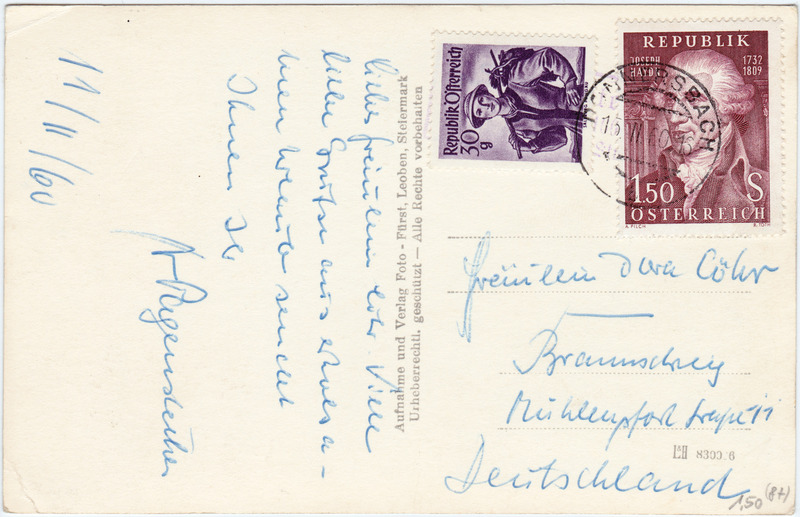 11/II/60
Liebes Fräulein Löhr. Viele
liebe Grüße aus erholsa-
men
sendet
Ihnen
Aufnahme und Verlag Foto - Fürst, Leoben, Steiermark
Urheberrechtl. geschützt — Alle Rechte vorbehalten
Republik Österreich
30
g
REPUBLIK
JOSEPH
HAYDN
1732
1809
1.50 S
ÖSTERREICH
Fräulein Dora Löhr
Braunschweig
Deutschland
8300/6
1,50
(87)